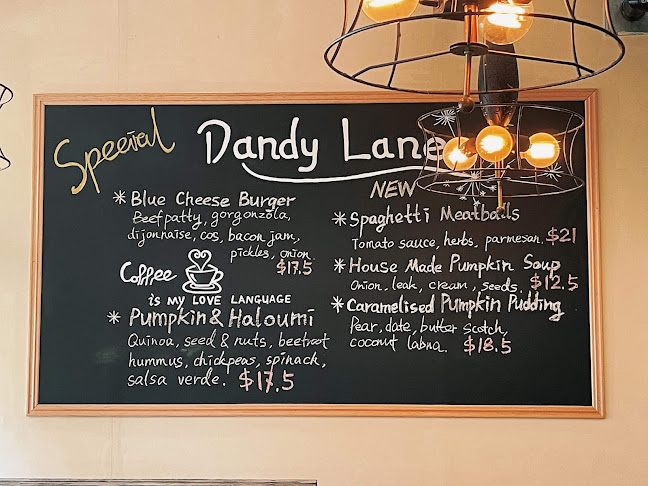 Speeial
Dandy Lane
* Blue Cheese Burger
Beef patty, gorgonzola,
dijonnaise, cos, bacon jam,
pickles, onion.
$17.5
Coffee
is my LOVE LANGUAGE
* Pumpkin & Haloumi
Quinoa, seed & nuts, beetroot
hummus, chickpeas, spinach,
salsa verde. $17.5
NEW
* Spaghetti Meatballs
Tomato sauce, herbs, parmesan. $21
* House Made Pumpkin Soup
Onion, leak, cream, seeds. $12.5
* Caramelised Pumpkin Pudding
Pear, date, butter scotch,
coconut labna. $18.5